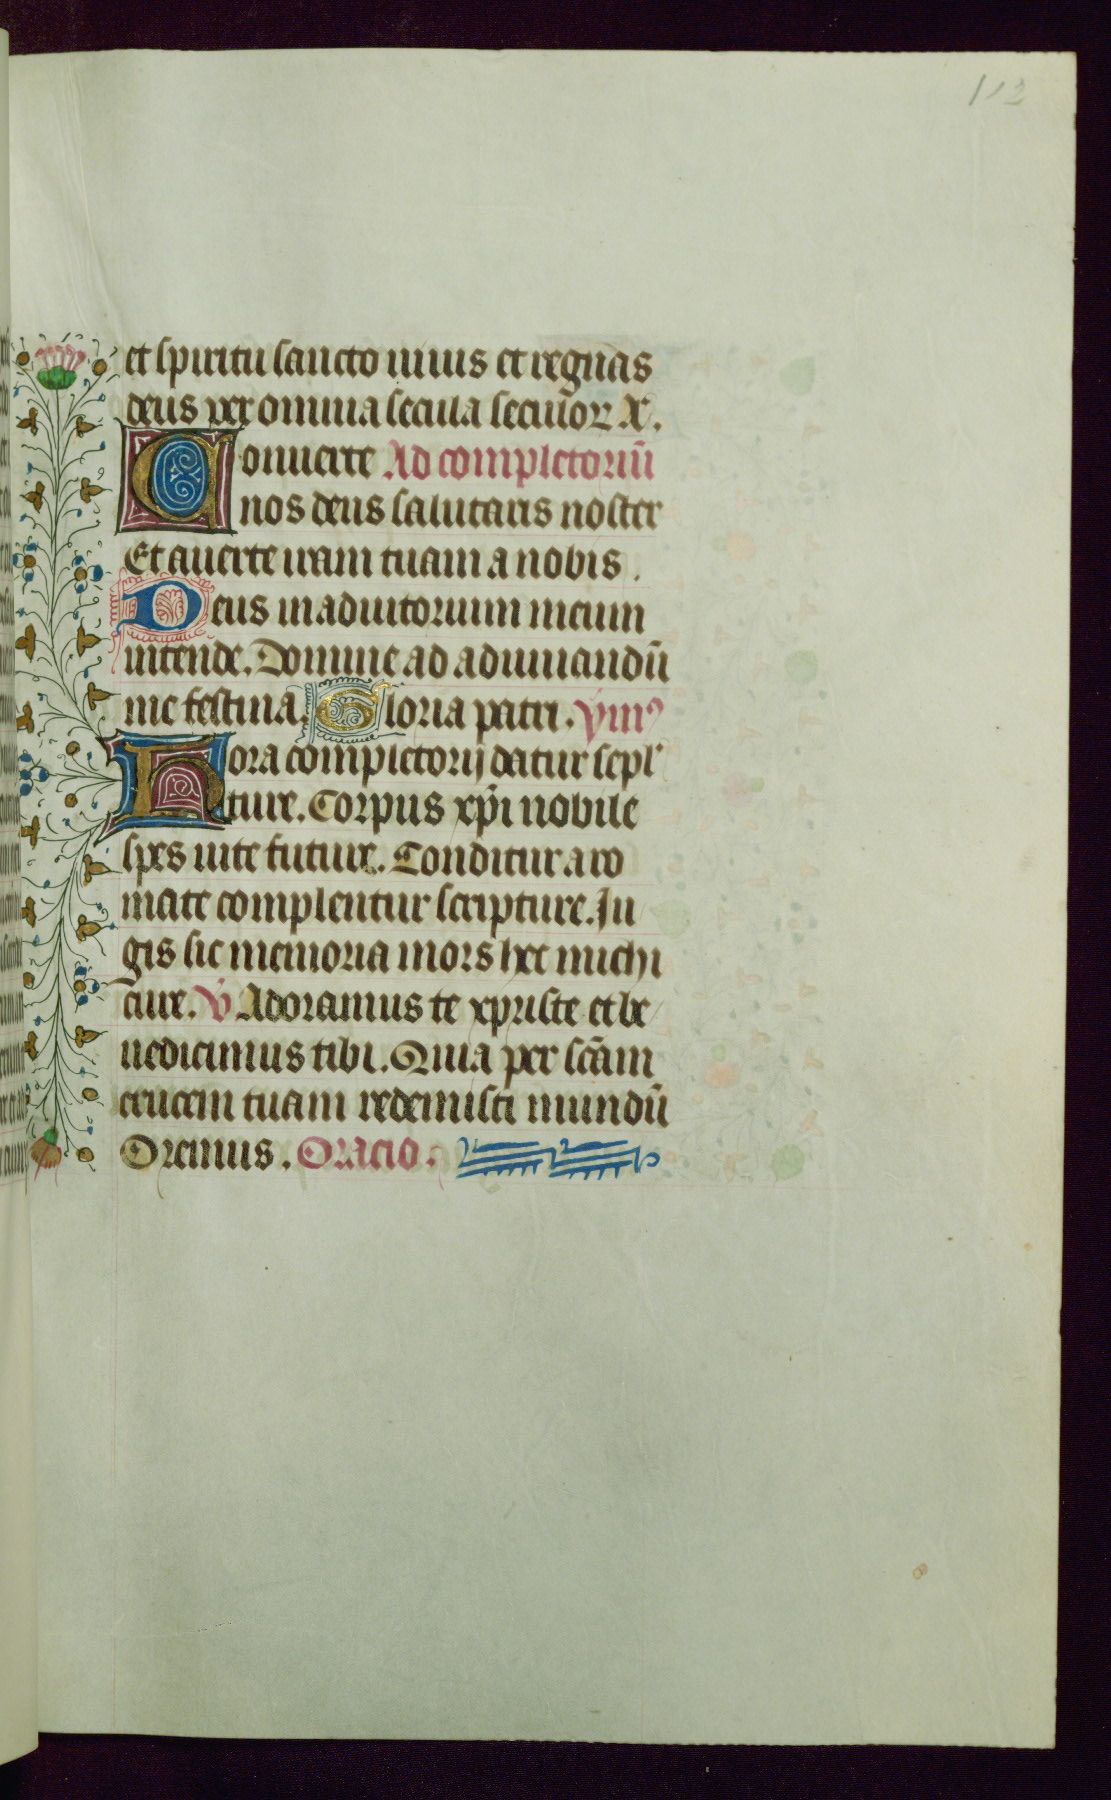 112
et spiritu sancto uiuis et regnas
deus per omnia secula seculoꝝ. X.
Conuerte Ad completoriū
nos deus salutaris noster
Et auerte iram tuam a nobis.
Deus in adiutorium meum
intende. Domine ad adiuuandū
me festina. Gloria patri. ymꝰ
Hora completorij datur sepl'
ture. Corpus xp̄i nobile
spes uite future. Conditur aro
mate complentur scripture. Iu
gis sic memoria mors hec michi
cure. V̄ Adoramus te xpriste et be
nedicimus tibi. Quia per sc̄am
crucem tuam redemisti mundū
Oremus. Oracio.